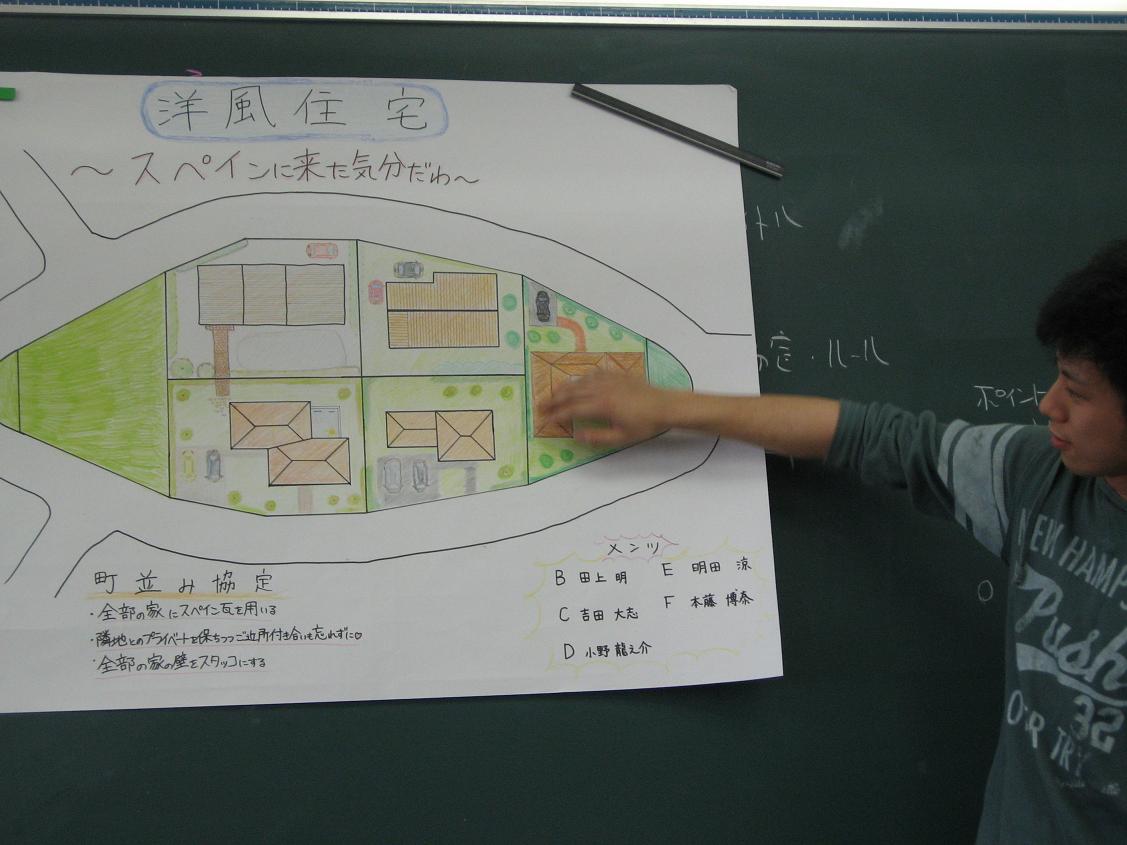 洋風住宅
～スペインに来た気分だわ～
町並み協定
・全部の家にスペイン瓦を用いる
・隣地とのプライベートを保ちつつご近所付き合いも忘れずに♡
・全部の家の壁をスタッコにする
メンツ
B 田上 明
E 明田 涼
C 吉田 大志
F 本藤 博奈
D 小野 龍之介
トル
定・ルール
ポイント
NEW HAMPS
Push
32
TRY